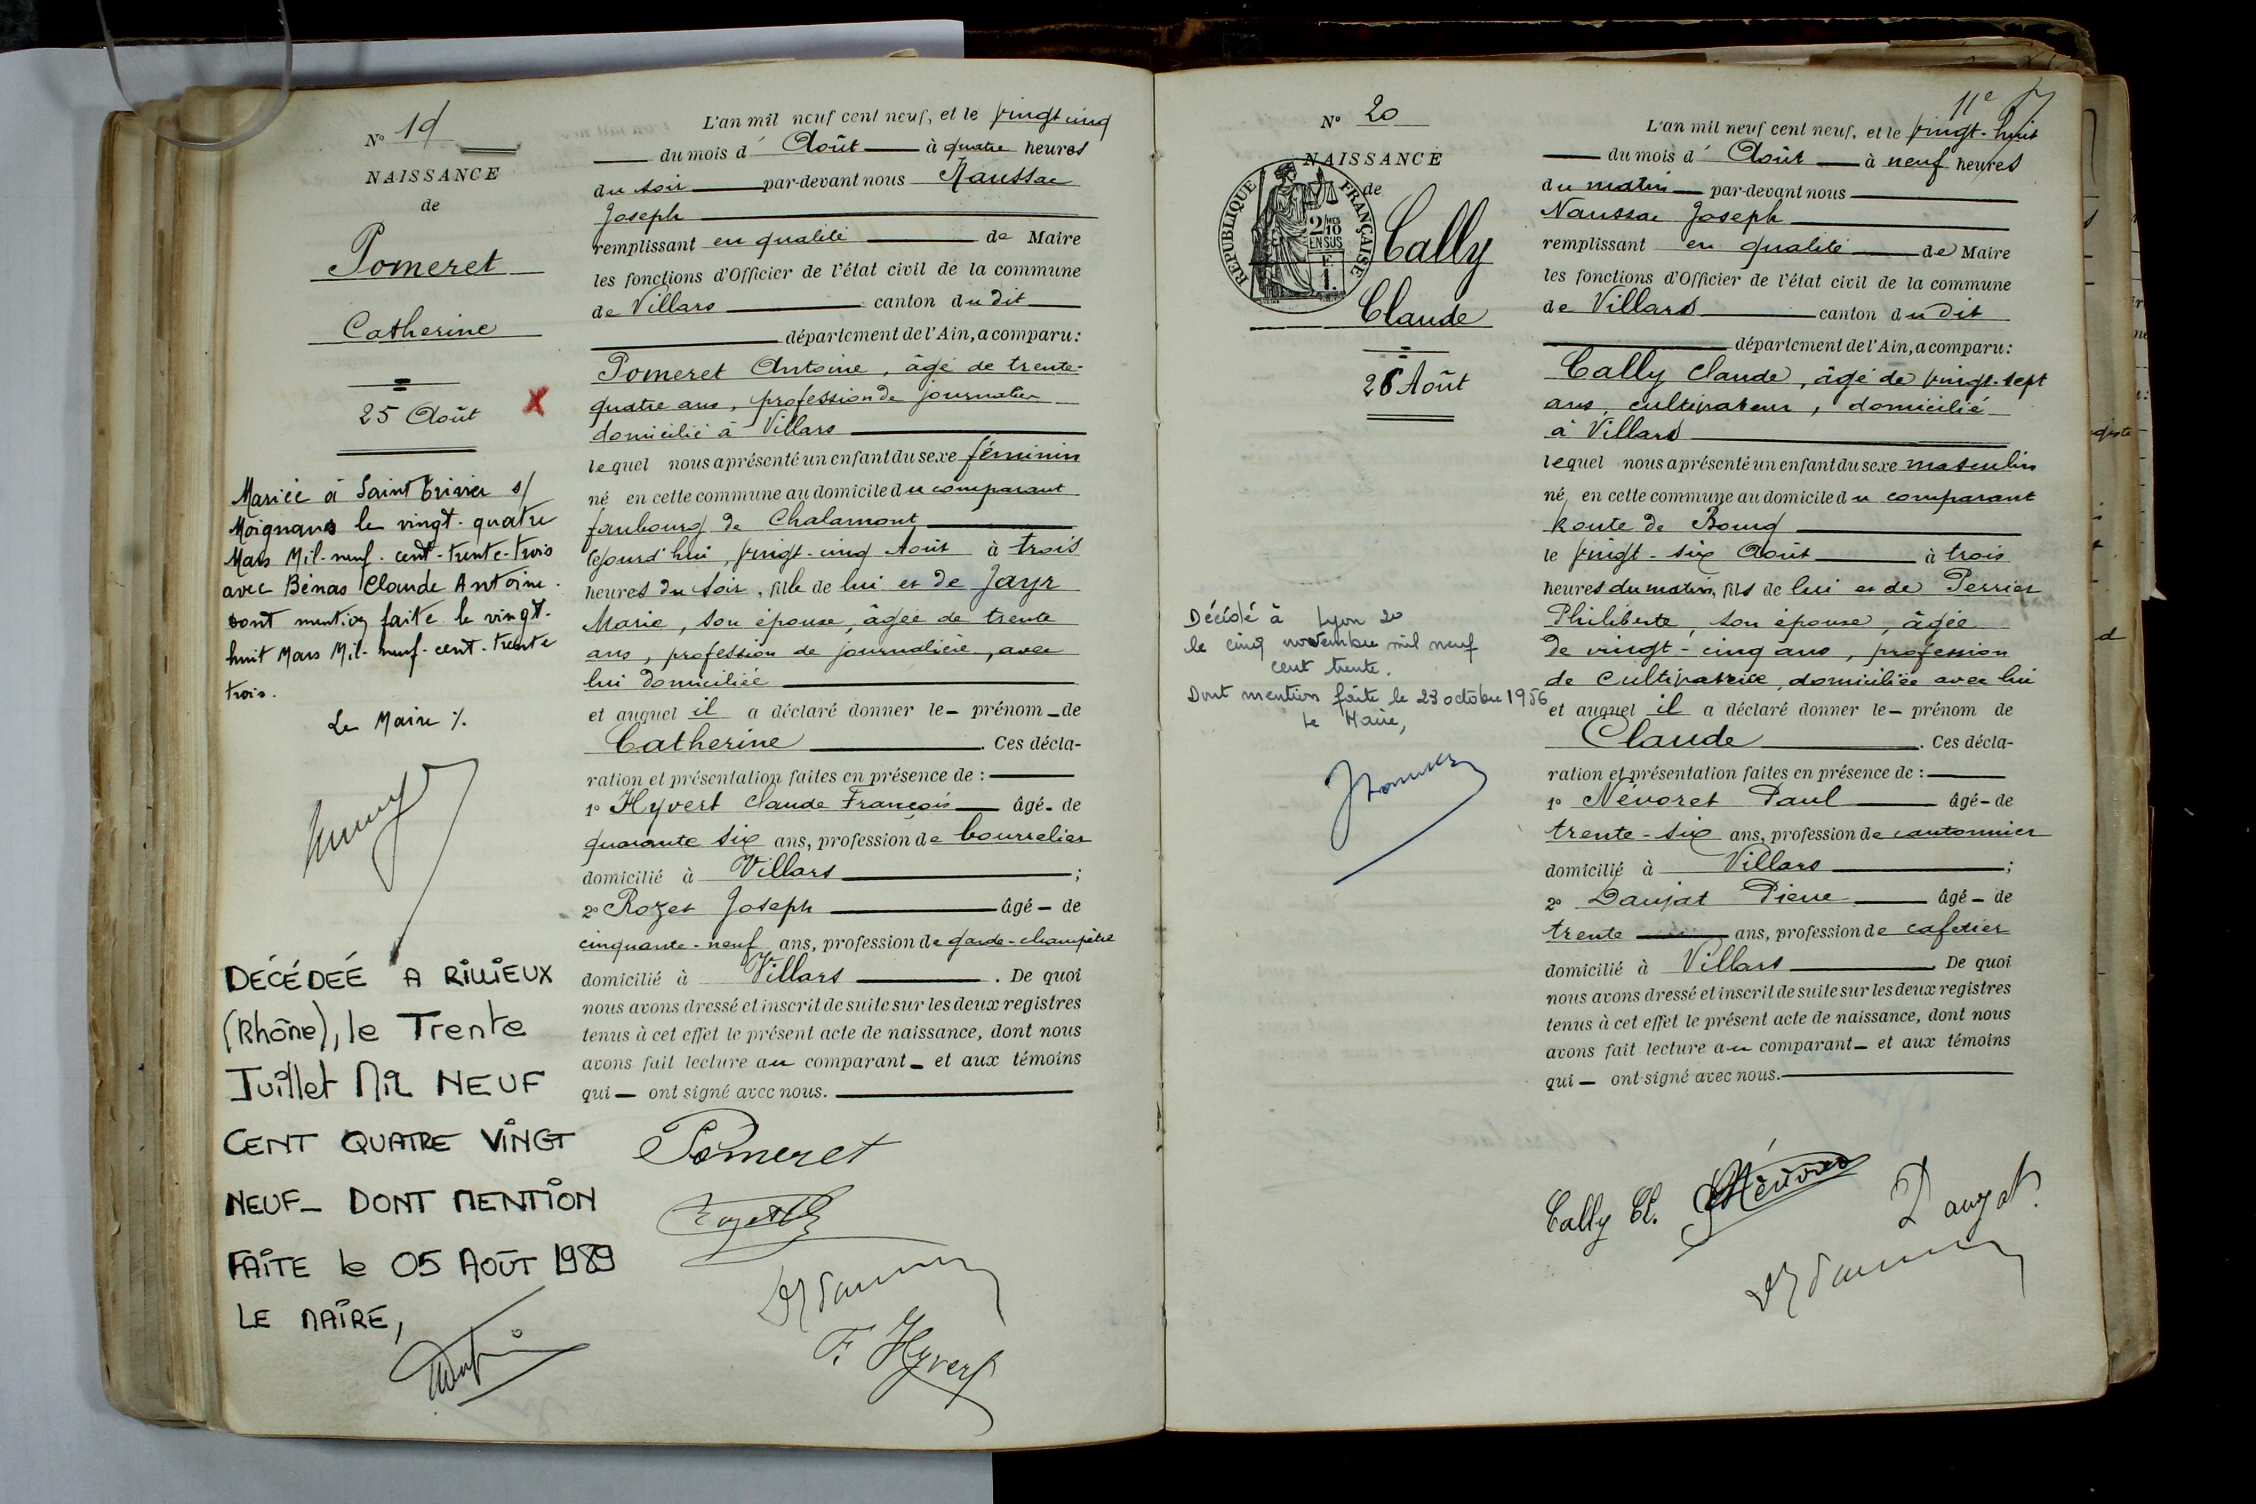 N° 19
NAISSANCE
de
Pomeret
Catherine
25 Août
X
Mariée à Saint Trivier s/
Moignans le vingt-quatre
Mars Mil-neuf-cent-trente-trois
avec Bénas Claude Antoine.
dont mention faite le vingt-
huit Mars Mil-neuf-cent-trente
trois.
Le Maire %.
DÉCÉDEÉ A RILLIEUX
(Rhône), le Trente
Juillet Mil NEUF
CENT QUATRE VINGT
NEUF_ DONT MENTION
FAITE le 05 AOÛT 1989
LE MAIRE,
L'an mil neuf cent neuf, et le vingt cinq
du mois d' Août à quatre heures
du soir par-devant nous Naussac
Joseph
remplissant en qualité de Maire
les fonctions d'Officier de l'état civil de la commune
de Villars canton du dit
département de l'Ain, a comparu:
Pomeret Antoine, âgé de trente-
quatre ans, profession de journalier
domicilié à Villars
lequel nous a présenté un enfant du sexe féminin
né en cette commune au domicile du comparant
faubourg de Chalamont
cejourd'hui, vingt-cinq Août à trois
heures du soir, fille de lui et de Jayr
Marie, son épouse, âgée de trente
ans, profession de journalière, avec
lui domiciliée
et auquel il a déclaré donner le- prénom-de
Catherine . Ces décla-
ration et présentation faites en présence de :
1° Hyvert Claude François âgé- de
quarante six ans, profession de bourrelier
domicilié à Villars ;
2° Rozet Joseph âgé- de
cinquante-neuf ans, profession de garde-champêtre
domicilié à Villars . De quoi
nous avons dressé et inscrit de suite sur les deux registres
tenus à cet effet le présent acte de naissance, dont nous
avons fait lecture au comparant- et aux témoins
qui- ont signé avec nous.
Pomeret
F. Hyvert
11e
N° 20
NAISSANCE
de
RÉPUBLIQUE FRANÇAISE
2/10
EN SUS
1.
Cally
Claude
26 Août
Décédé à Lyon 2°
le cinq novembre mil neuf
cent trente.
Dont mention faite le 23 octobre 1956
Le Maire,
L'an mil neuf cent neuf, et le vingt-huit
du mois d' Août à neuf heures
du matin par-devant nous
Naussac Joseph
remplissant en qualité de Maire
les fonctions d'Officier de l'état civil de la commune
de Villars canton du dit
département de l'Ain, a comparu:
Cally Claude, âgé de vingt-sept
ans, cultivateur, domicilié
à Villars
lequel nous a présenté un enfant du sexe masculin
né en cette commune au domicile du comparant
Route de Bourg
le vingt-six Août à trois
heures du matin, fils de lui et de Perrier
Philiberte, son épouse, âgée
de vingt-cinq ans, profession
de cultivatrice, domiciliée avec lui
et auquel il a déclaré donner le- prénom de
Claude . Ces décla-
ration et présentation faites en présence de :
1° Névoret Paul âgé- de
trente-six ans, profession de cantonnier
domicilié à Villars ;
2° Daujat Pierre âgé- de
trente ans, profession de cafetier
domicilié à Villars De quoi
nous avons dressé et inscrit de suite sur les deux registres
tenus à cet effet le présent acte de naissance, dont nous
avons fait lecture au comparant- et aux témoins
qui- ont signé avec nous.
Cally Cl.
Daujat